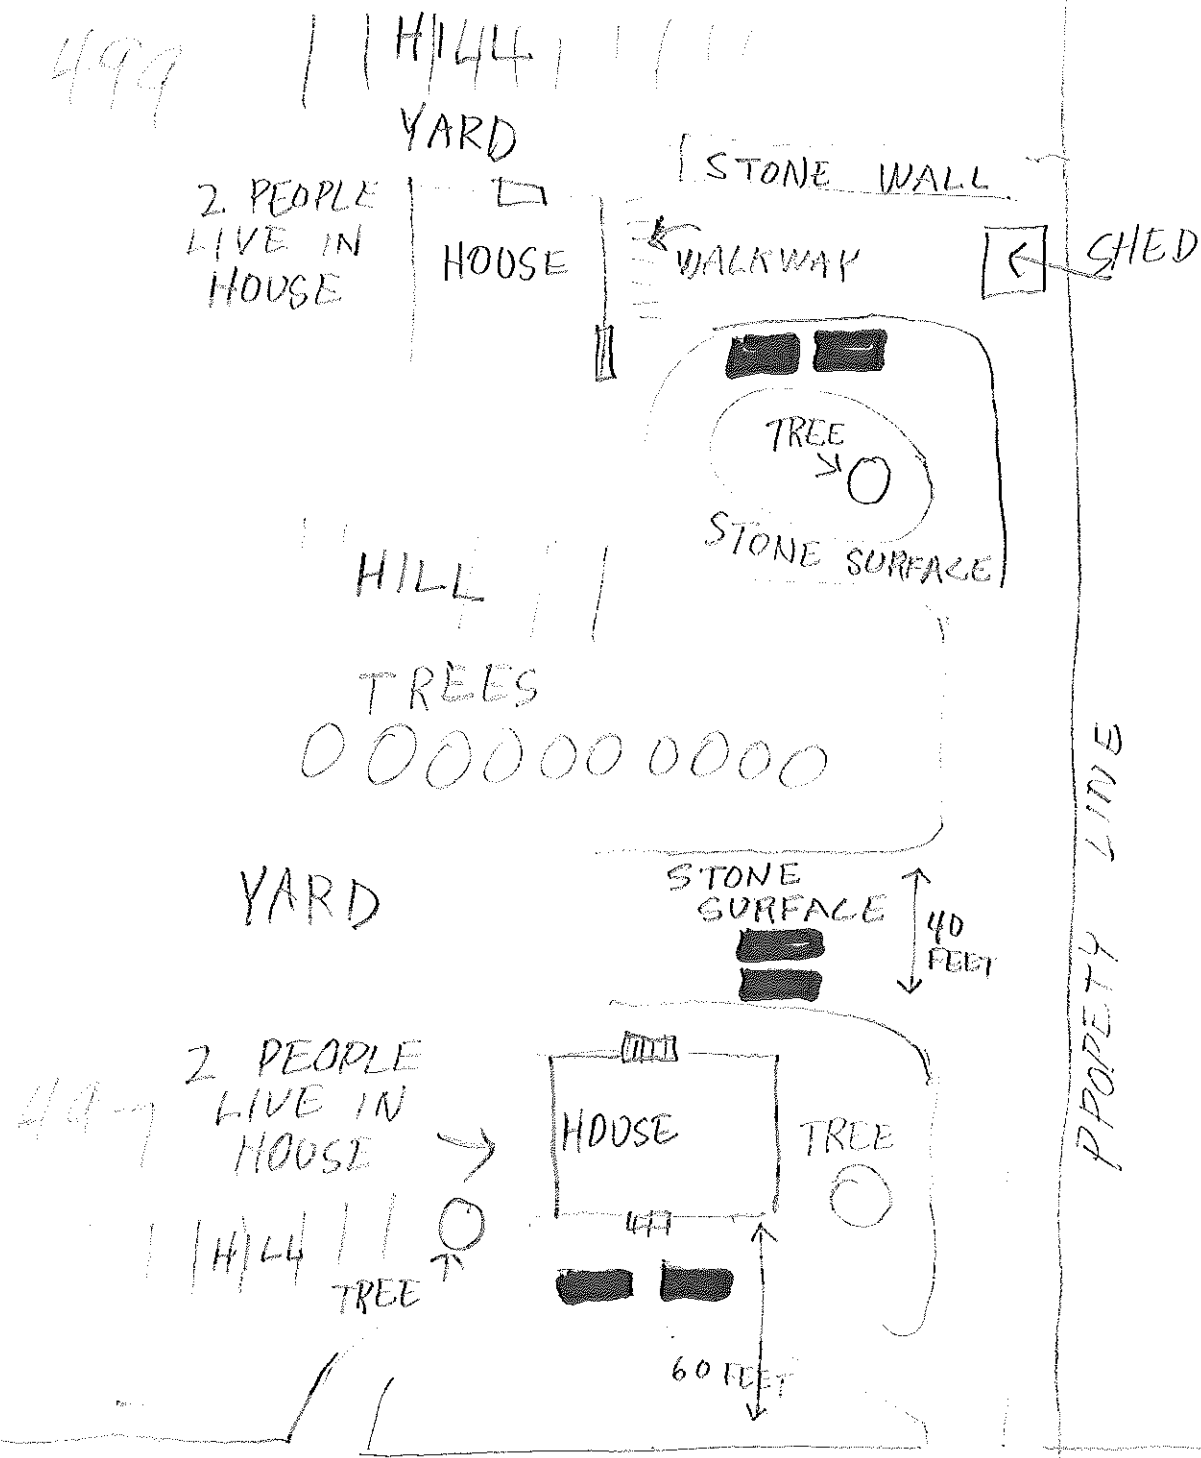 499
HILL
YARD
STONE WALL
2 PEOPLE
LIVE IN
HOUSE
HOUSE
WALKWAY
SHED
TREE
STONE SURFACE
HILL
TREES
YARD
STONE
SURFACE
40
FEET
PPOPETY LINE
2 PEOPLE
LIVE IN
HOUSE
HOUSE
TREE
HILL
TREE
60 FEET